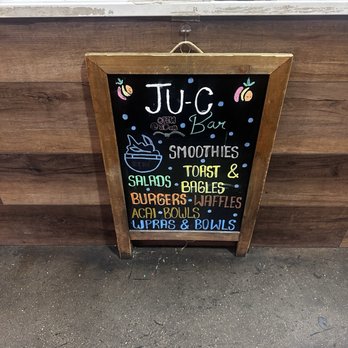 JU-C
Bar
SMOOTHIES
TOAST &
SALADS • BAGLES
BURGERS • WAFFLES
ACAI • BOWLS
WPRAS & BOWLS